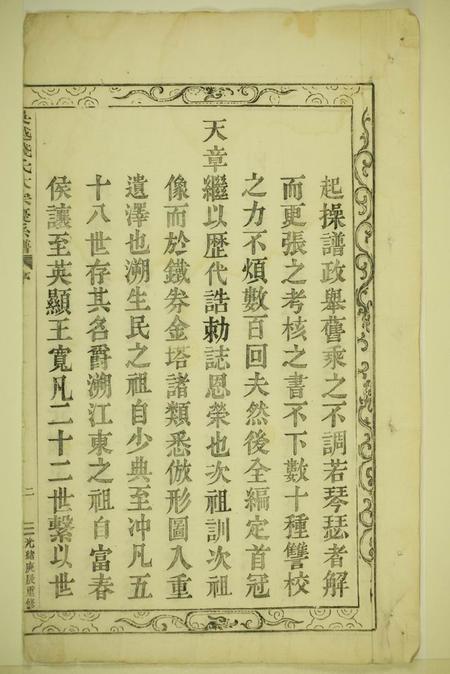 起操譜政舉舊乘之不調若琴瑟者解
而更張之考核之書不下數十種讐校
之力不煩數百回夫然後全編定首冠
天章繼以歷代誥勅誌恩榮也次祖訓次祖
像而於鐵券金塔諸類悉倣形圖入重
遺澤也溯生民之祖自少典至沖凡五
十八世存其名爵溯江東之祖自富春
侯讓至英顯王寬凡二十二世繫以世
二
光緒庚辰重修